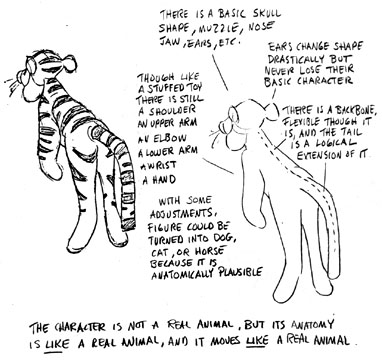 THERE IS A BASIC SKULL
SHAPE, MUZZLE, NOSE
JAW, EARS, ETC.
EARS CHANGE SHAPE
DRASTICALLY BUT
NEVER LOSE THEIR
BASIC CHARACTER
THOUGH LIKE
A STUFFED TOY
THERE IS STILL
A SHOULDER
AN UPPER ARM
AN ELBOW
A LOWER ARM
A WRIST
A HAND
THERE IS A BACKBONE,
FLEXIBLE THOUGH IT
IS, AND THE TAIL
IS A LOGICAL
EXTENSION OF IT.
WITH SOME
ADJUSTMENTS,
FIGURE COULD BE
TURNED INTO DOG,
CAT, OR HORSE
BECAUSE IT IS
ANATOMICALLY PLAUSIBLE
THE CHARACTER IS NOT A REAL ANIMAL, BUT ITS ANATOMY
IS LIKE A REAL ANIMAL, AND IT MOVES LIKE A REAL ANIMAL.